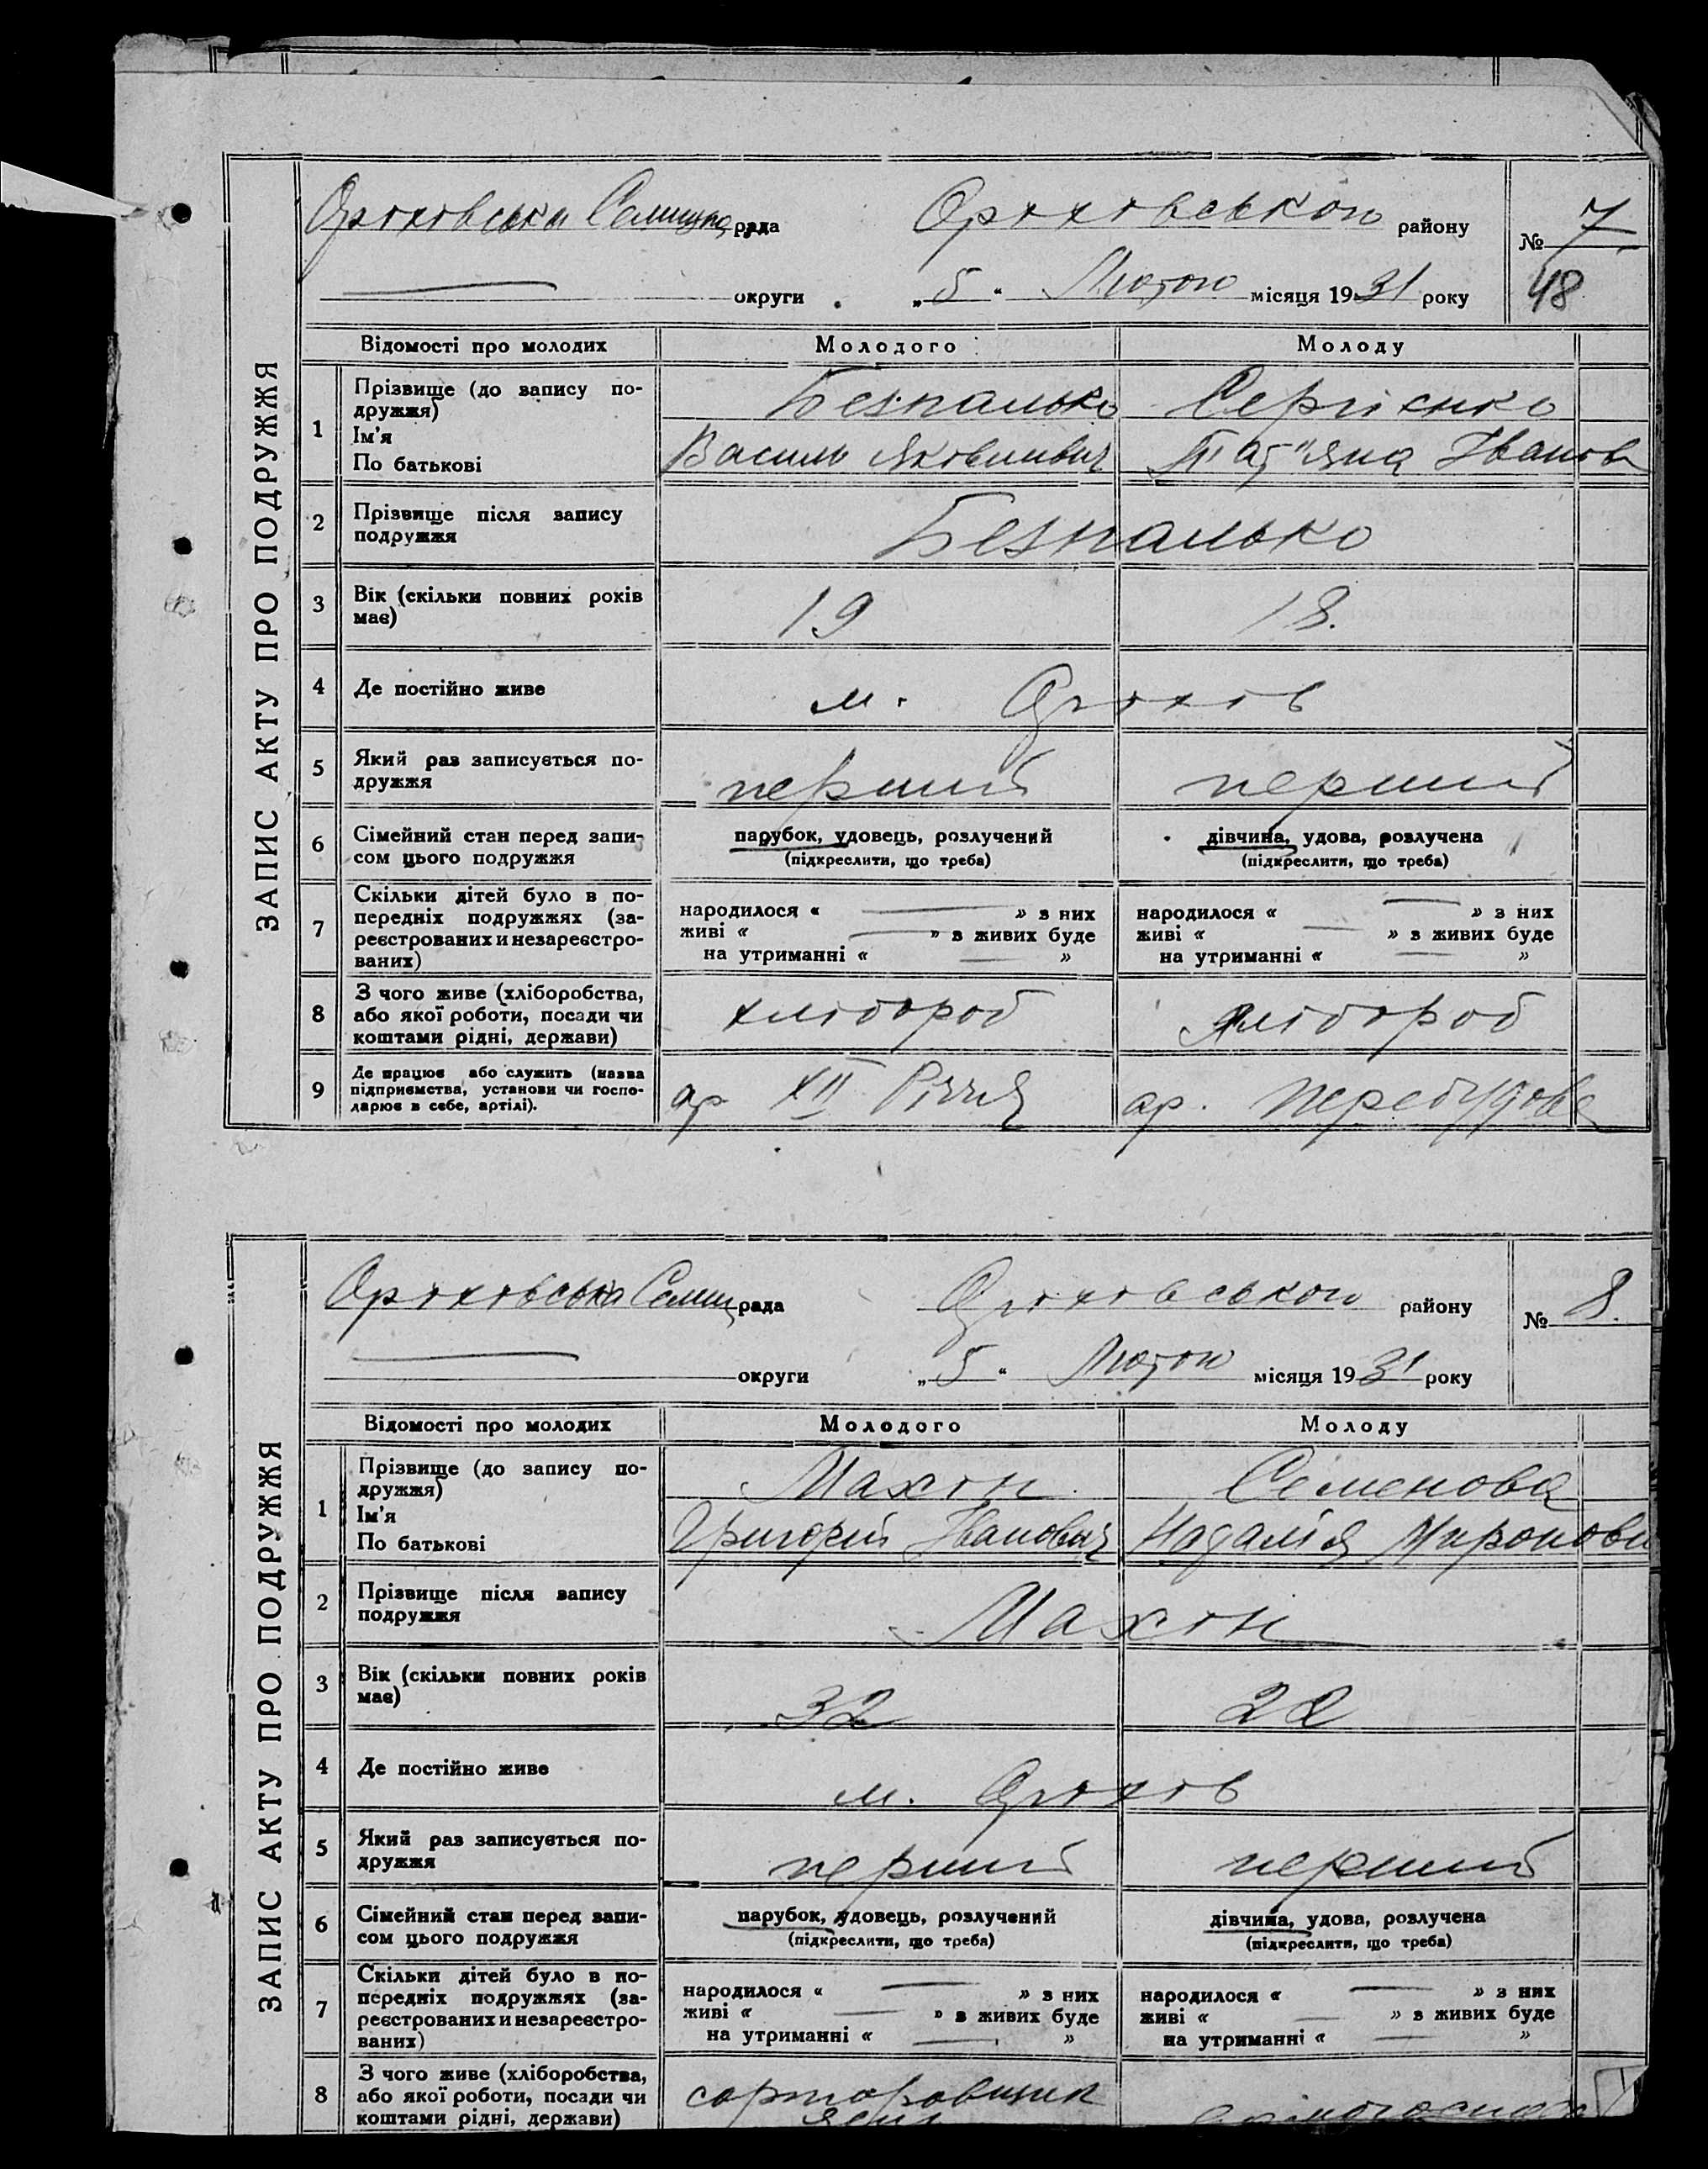 ЗАПИС АКТУ ПРО ПОДРУЖЖЯ
Оріховська Селищна рада Оріховського району № 7
округи „5“ Лютого місяця 1931 року 48
Відомості про молодих Молодого Молоду
1 Прізвище (до запису по-
дружжя)
Ім'я
По батькові
Безпалько Сергієнко
Василь Яковлевич Тат"яна Іванов
2 Прізвище після запису
подружжя
Безпалько
3 Вік (скільки повних років
має)
19 18.
4 Де постійно живе м. Оріхов
5 Який раз записується по-
дружжя
перший перший
6 Сімейний стан перед запи-
сом цього подружжя
парубок, удовець, розлучений дівчина, удова, розлучена
(підкреслити, що треба) (підкреслити, що треба)
7 Скільки дітей було в по-
передніх подружжях (за-
реєстрованих и незареєстро-
ваних)
народилося « » з них народилося « » з них
живі « » з живих буде живі « » з живих буде
на утриманні « » на утриманні « »
8 З чого живе (хліборобства,
або якої роботи, посади чи
коштами рідні, держави)
хлібороб хлібороб
9 Де працює або служить (назва
підприємства, установи чи госпо-
дарює в себе, артілі).
ар XII Річчя ар. Перебудова
ЗАПИС АКТУ ПРО ПОДРУЖЖЯ
Оріховська Селищ рада Оріховського району № 8.
округи „5“ Лютого місяця 1931 року
Відомості про молодих Молодого Молоду
1 Прізвище (до запису по-
дружжя)
Ім'я
По батькові
Махон Семенова
Григорій Іванович Надалія Миронови
2 Прізвище після запису
подружжя
Махон
3 Вік (скільки повних років
має)
32 22
4 Де постійно живе м. Оріхов
5 Який раз записується по-
дружжя
перший перший
6 Сімейний стан перед запи-
сом цього подружжя
парубок, удовець, розлучений дівчина, удова, розлучена
(підкреслити, що треба) (підкреслити, що треба)
7 Скільки дітей було в по-
передніх подружжях (за-
реєстрованих и незареєстро-
ваних)
народилося « » з них народилося « » з них
живі « » з живих буде живі « » з живих буде
на утриманні « » на утриманні « »
8 З чого живе (хліборобства,
або якої роботи, посади чи
коштами рідні, держави)
сортаровщик